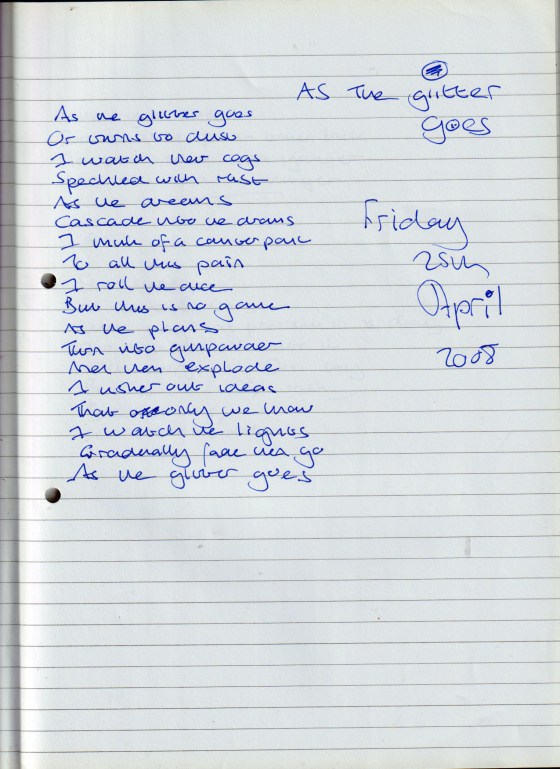 As the glitter
goes
As the glitter goes
Or turns to dust
I watch her cogs
Speckled with rust
As the dreams
Cascade into the drains
I think of a counterpane
To all this pain
I roll the dice
But this is no game
As the plans
Turn into gunpowder
And then explode
I usher out ideas
That only we know
I watch the lights
Gradually fade then go
As the glitter goes
Friday
25th
April
2008